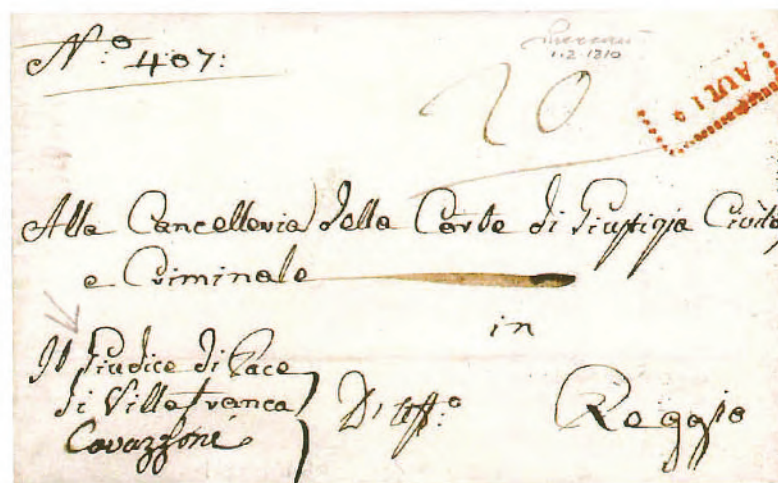 N.º 407:
1·2·1810
20
AULA
Alla Cancelleria della Corte di Giustizia Civile
e Criminale
in
Il Giudice di Pace
di Villafranca
Cavazzoni
D'uff.º
Reggio